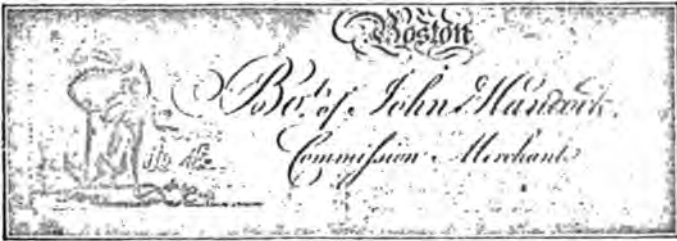 Boston
Bo.t of John Hancock.
Commission Merchant